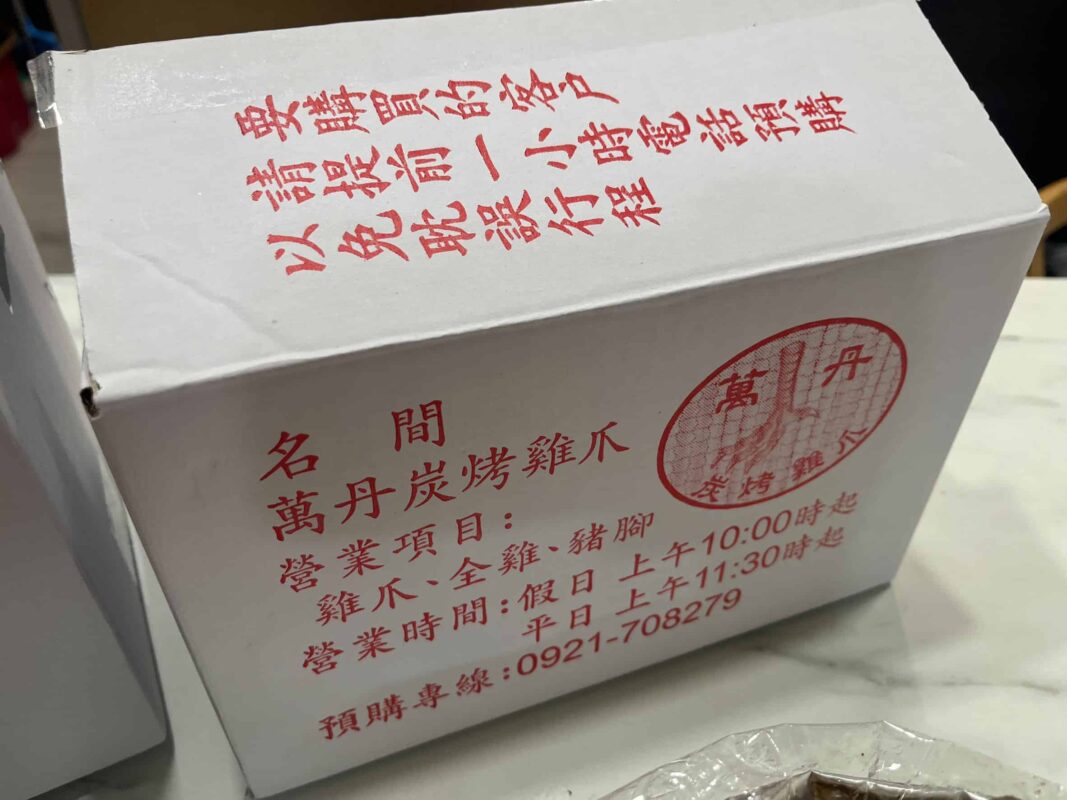 要購買的客戶
請提前一小時電話預購
以免耽誤行程
名間
萬丹炭烤雞爪
萬丹
炭烤雞爪
營業項目:
雞爪、全雞、豬腳
營業時間:假日 上午10:00時起
平日 上午11:30時起
預購專線:0921-708279